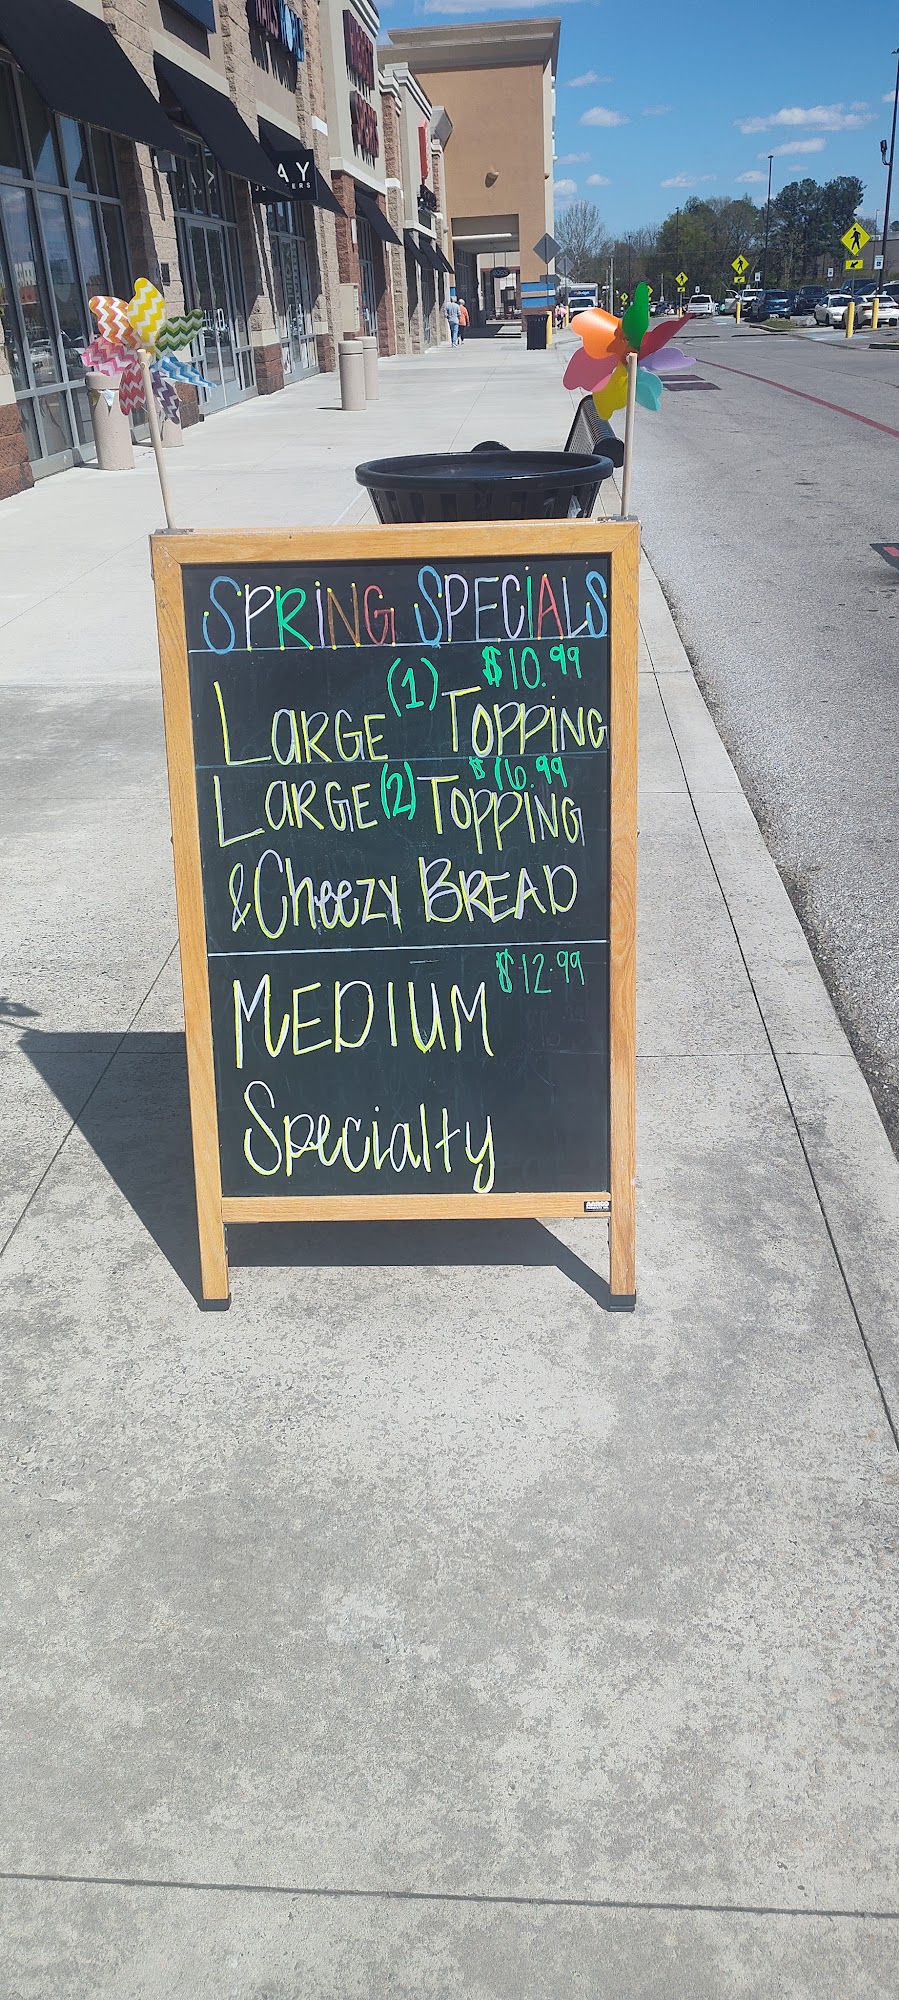 SPRING SPECIALS
$10.99
LARGE (1) TOPPING
$16.99
LARGE (2) TOPPING
& Cheezy BREAD
$12.99
MEDIUM
Specialty
AY